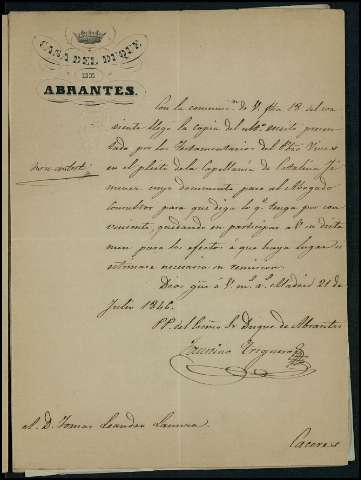 CASA DEL DUQUE
DE
ABRANTES.
Con la comunic.on de V. fha 18 del cor
riente llego la copia del ulto. escrito presen
tado por los Testamentarios del Pbro Vives
en el pleito de la Capellanía de Catalina Ji
menez cuyo documento pasa al Abogado
consultor para que diga lo q.e tenga por con
veniente, quedando en participar a V. su dicta
men para los efectos a que haya lugar si
estimare necesaria su remision.
Dios gue. á V. m. a.s Madrid 21 de
Julio 1846.
P.P. del Excmo Sr Duque de Abrantes
Faustino Trigueros
Sr. D. Tomas Leandro
Caceres